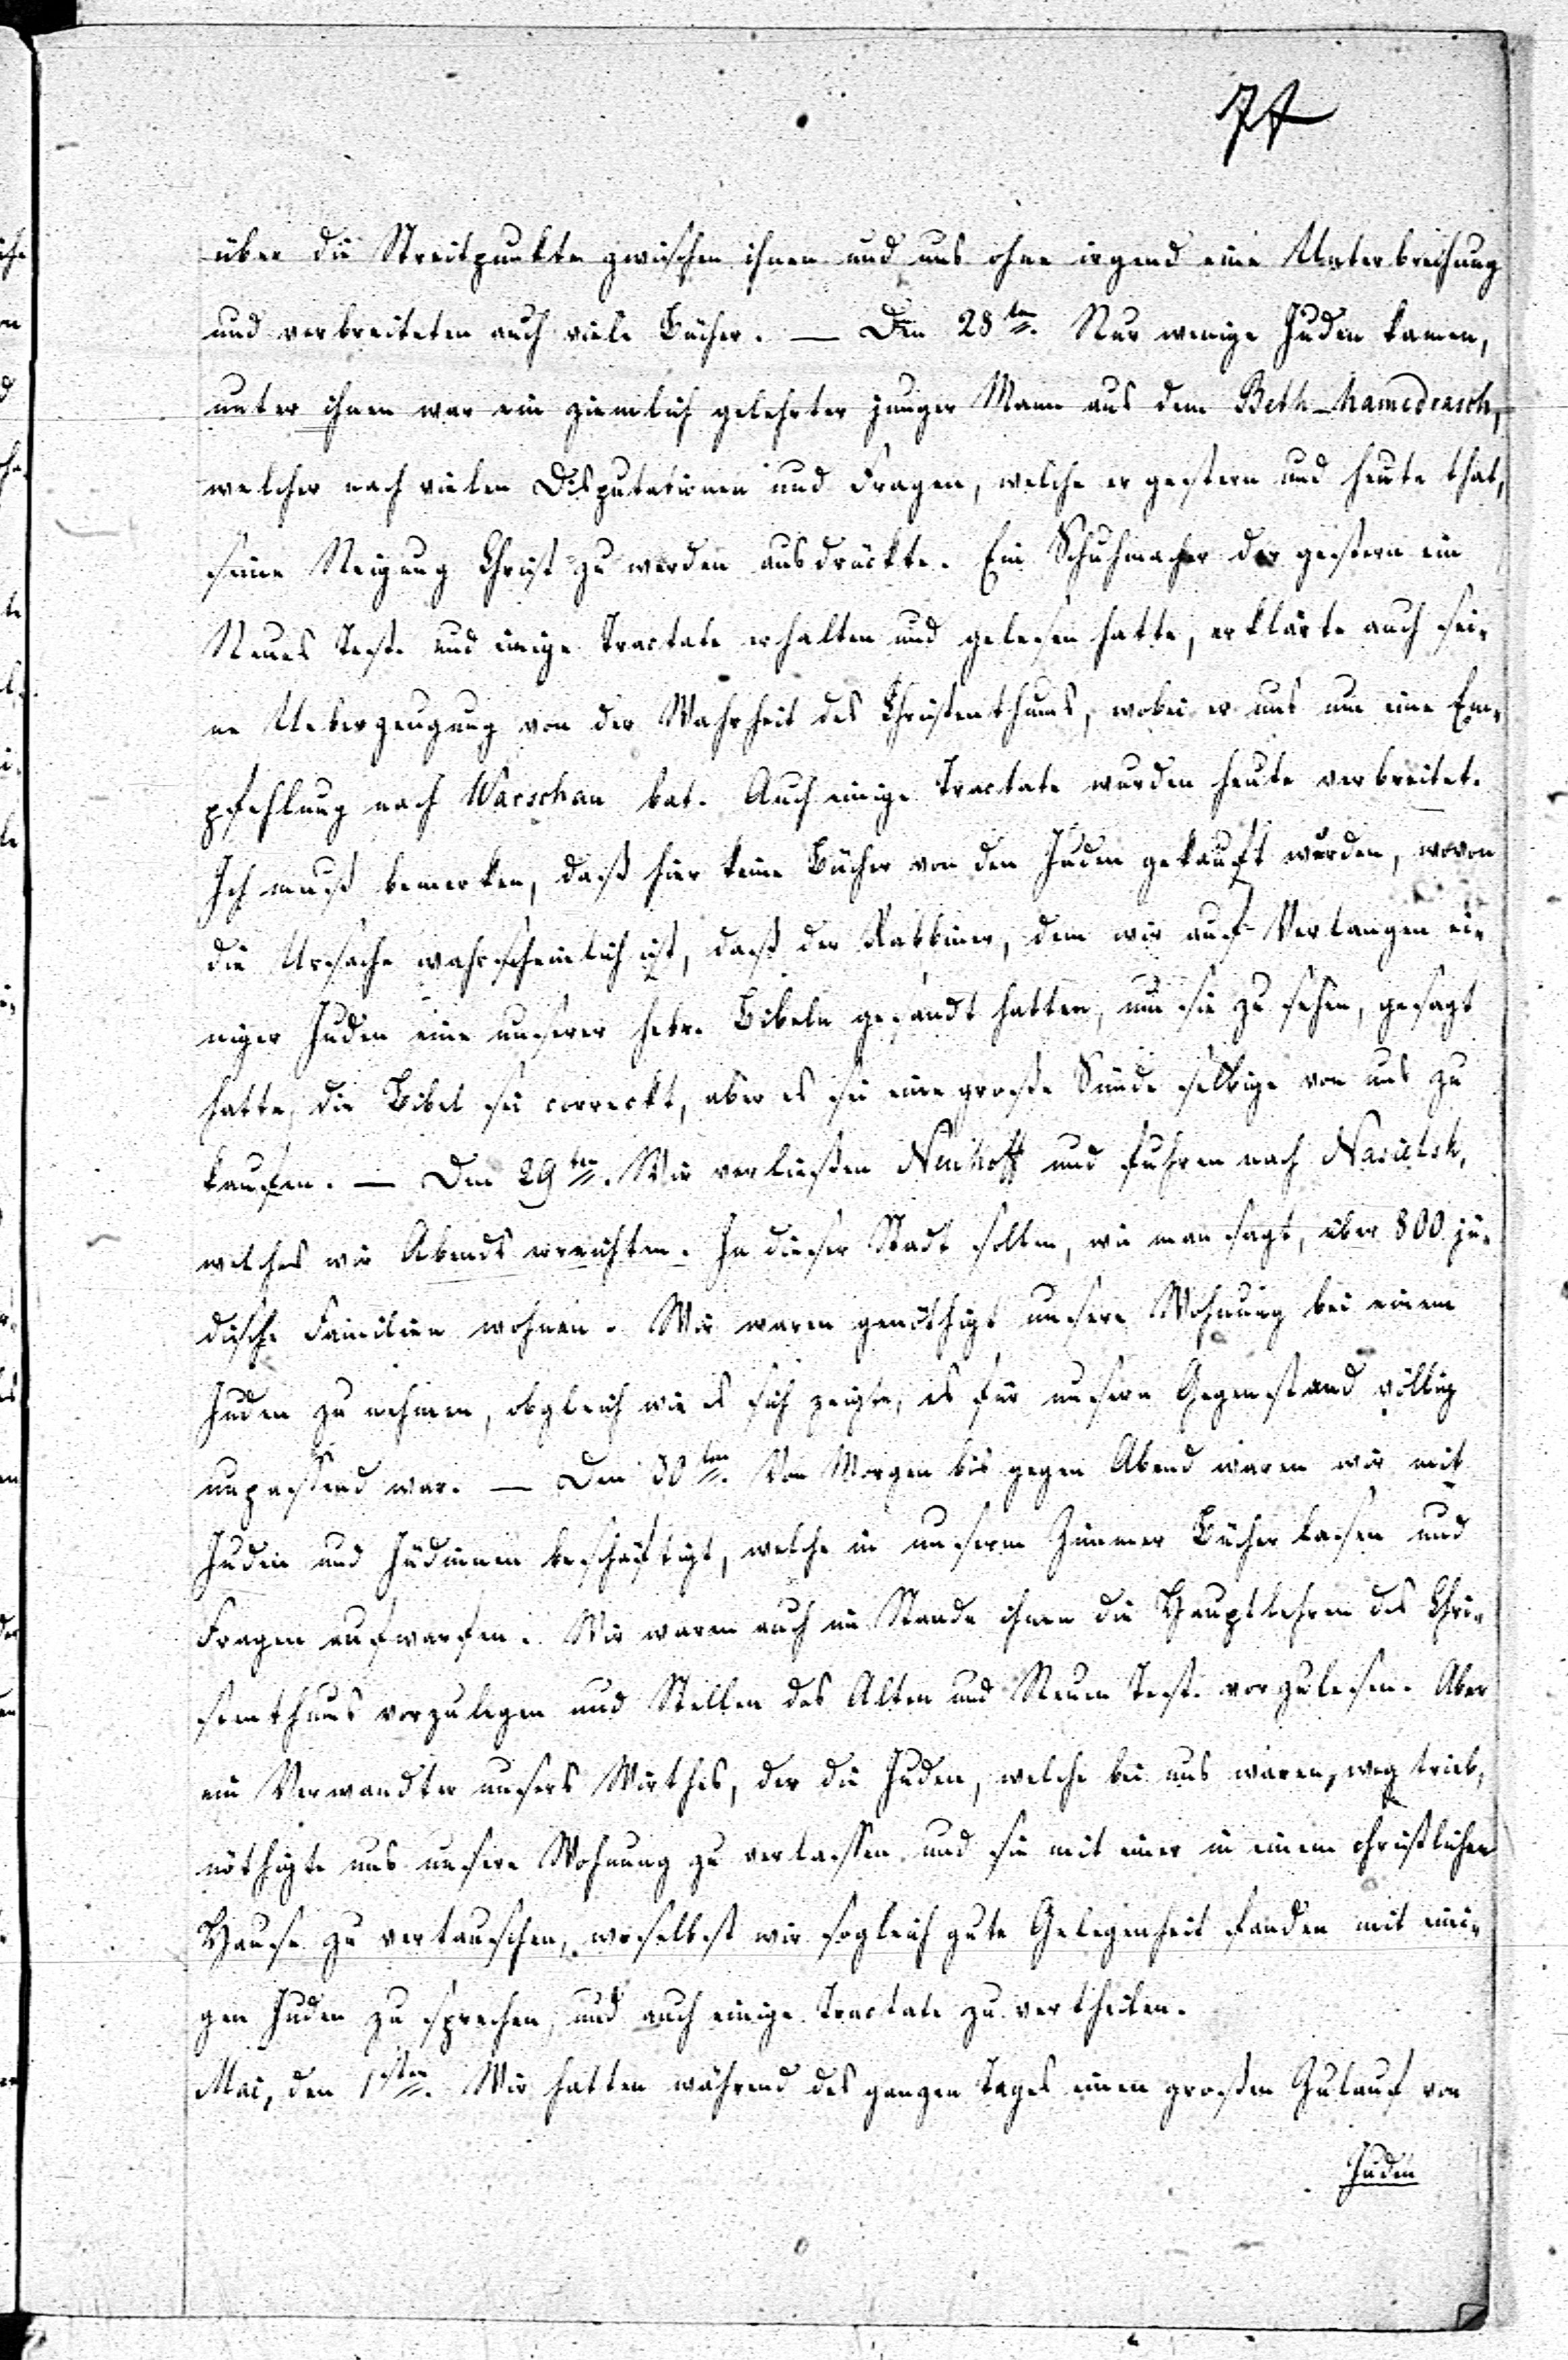 über die Streitpunkte zwischen ihnen und uns ohne irgend eine Unterbrechung
und verbreiteten auch viele Bücher. — Den 28ten. Nur wenige Juden kamen,
unter ihnen war ein ziemlich gelehrter junger Mann aus dem Beth-Hamedrasch,
welcher nach vielen Disputationen und Fragen, welche er gestern und heute that,
seine Neigung Christ zu werden ausdrückte. Ein Schuhmacher der gestern ein
Neues Test. und einige Tractate erhalten und gelesen hatte, erklärte auch sei-
ne Ueberzeugung von der Wahrheit des Christenthums, wobei er uns um eine Em-
pfehlung nach Warschau bat. Auch einige Tractate wurden heute verbreitet.
Ich muß bemerken, daß hier keine Bücher von den Juden gekauft wurden, wovon
die Ursache wahrscheinlich ist, daß der Rabbiner, dem wir auf Verlangen ei-
niger Juden eine unserer hebr. Bibeln gesandt hatten, um sie zu sehen, gesagt
hatte, die Bibel sei correckt, aber es sei eine große Sünde selbige von uns zu
kaufen. — Den 29ten. Wir verließen Neuhoff und fuhren nach Nasielsk,
welches wir Abends erreichten. In dieser Stadt sollen, wie man sagt, über 800 jü-
dische Familien wohnen. Wir waren genöthigt unsere Wohnung bei einem
Juden zu nehmen, obgleich wie es sich zeigte, es für unsern Gegenstand völlig
unpassend war. — Den 30ten. Von Morgen bis gegen Abend waren wir mit
Juden und Jüdinnen beschäftigt, welche in unserm Zimmer Bücher lasen und
Fragen aufwarfen. Wir waren auch im Stande ihnen die Hauptlehren des Chri-
stenthums vorzulegen und Stellen des Alten und Neuen Test. vorzulesen. Aber
ein Verwandter unsers Wirthes, der die Juden, welche bei uns waren, weg trieb,
nöthigte uns unsere Wohnung zu verlassen und sie mit einer in einem christlichen
Hause zu vertauschen, woselbst wir sogleich gute Gelegenheit fanden mit eini-
gen Juden zu sprechen, und auch einige Tractate zu vertheilen.
Mai, den 1sten. Wir hatten während des ganzen Tages einen großen Zulauf von
Juden